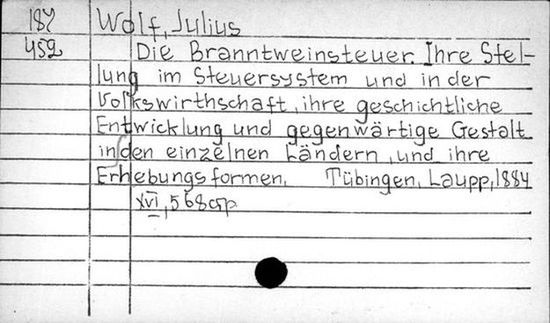 187 Wolf, Julius
452 Die Branntweinsteuer. Ihre Stel-
lung im Steuersystem und in der
Volkswirthschaft, ihre geschichtliche
Entwicklung und gegenwärtige Gestalt
in den einzelnen Ländern, und ihre
Erhebungsformen. Tübingen, Laupp, 1884
XVI, 568